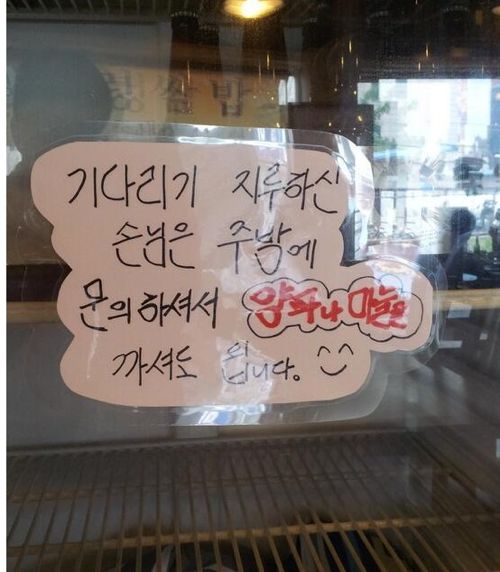 쌀밥
기다리기 지루하신
손님은 주방에
문의하셔서 양파나 마늘을
까셔도 됩니다.